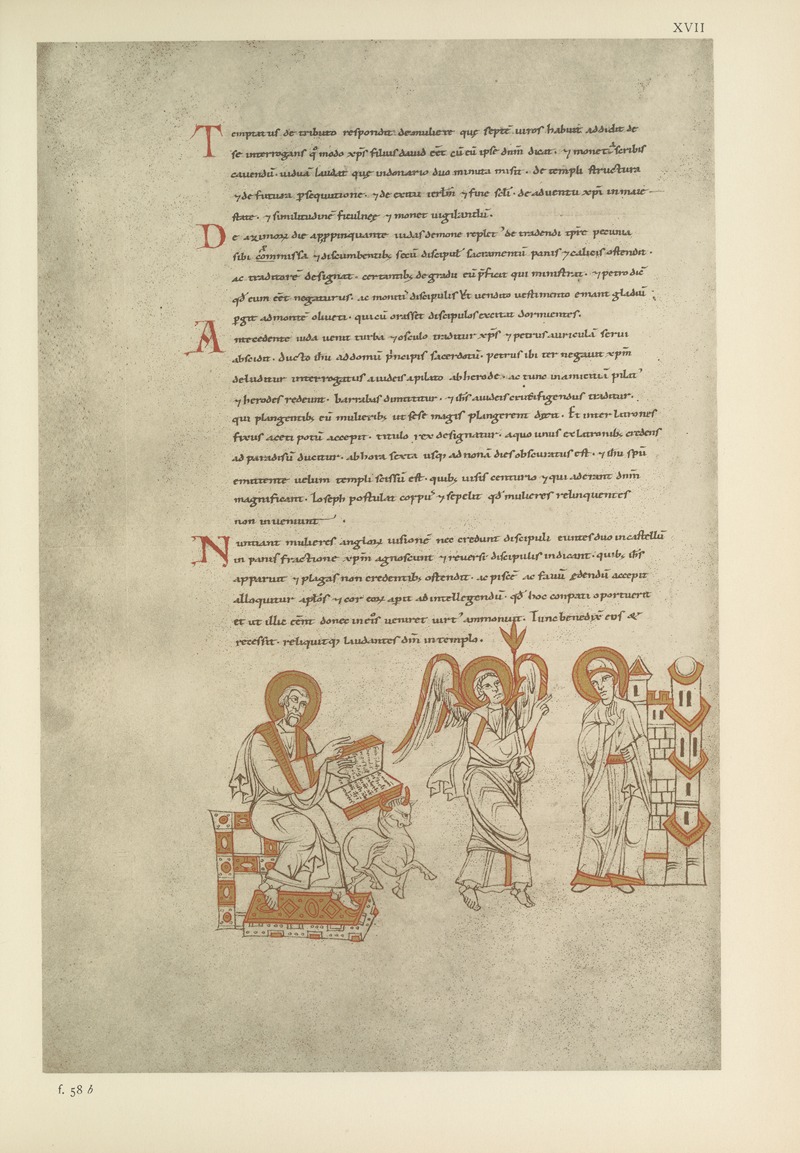 XVII
Temptatus de tributo respondit. de muliere quę septē uiros habuit addidit de
se interrogans qͦmodo xp̄s filius dauid eēt cū eū ipse dn̄m dicat. ⁊ monet a scribis
cauendū. uiduā laudat quę in donario duo minuta misit. de templi structura
⁊ de futura psequutione. ⁊ de exitu ierl̄m ⁊ fine scl̄i. de aduentu xp̄i in maie
state. ⁊ similitudinē ficulneę ⁊ monet uigilandū.
De azimoꝝ die appropinquante iudas demone replet᾽ de tradendi xp̄i pecunia
sibi commissa ⁊ discumbentibꝫ secū discipul᾽ sacramentū panis ⁊ calicis ostendit.
ac traditorē designat. certantibꝫ de gradu eū p̄ficit qui ministrat. ⁊ petro dic̄
qd̄ eum eēt negaturus. ac monet᾽ discipulis ut uendito uestimento emant gladiū
pgit ad montē oliueti. qui cū orasset discipulos excitat dormientes.
Antecedente iuda uenit turba ⁊ osculo traditur xp̄s ⁊ petrus auriculā serui
abscidit. ducto ih̄u ad domū p̄ncipis sacerdotū. petrus ibi ter negauit xp̄m
deluditur interrogatus a iudeis a pilato ab herode. ac tunc in amicitiā pilat᾽
⁊ herodes redeunt. barrabas dimittitur. ⁊ ih̄s a iudeis crucifigendus traditur.
qui plangentibꝫ eū mulieribꝫ ut sese magis plangerent dixit. Et inter latrones
fixus aceti potū accepit. titulo rex designatur. a quo unus ex latronibꝫ credens
ad paradisū ducitur. ab hora sexta usqꝫ ad nonā dies obscuratus est. ⁊ ih̄u sp̄m
emittente uelum templi scissū est. quibꝫ uisis centurio ⁊ qui aderant dn̄m
magnificant. Ioseph postulat corpus ⁊ sepelit qd̄ mulieres relinquentes
non inueniunt.
Nuntiant mulieres angloꝝ uisionē nec credunt discipuli euntes duo in castellū
in panis fractione xp̄m agnoscunt ⁊ reuersi discipulis indicant. quibꝫ ih̄s
apparuit ⁊ plagas non credentibꝫ ostendit. ac piscē ac fauū ędendū accepit
alloquitur aplōs ⁊ cor eoꝝ apit ad intellegendū. qd̄ hoc conpati oportuerit
et ut illic eēnt donec in eis ueniret uirt᾽ ammonuit. Tunc benedixit eos &
recessit. reliquitqꝫ laudantes dm̄ in templo.
f. 58 b